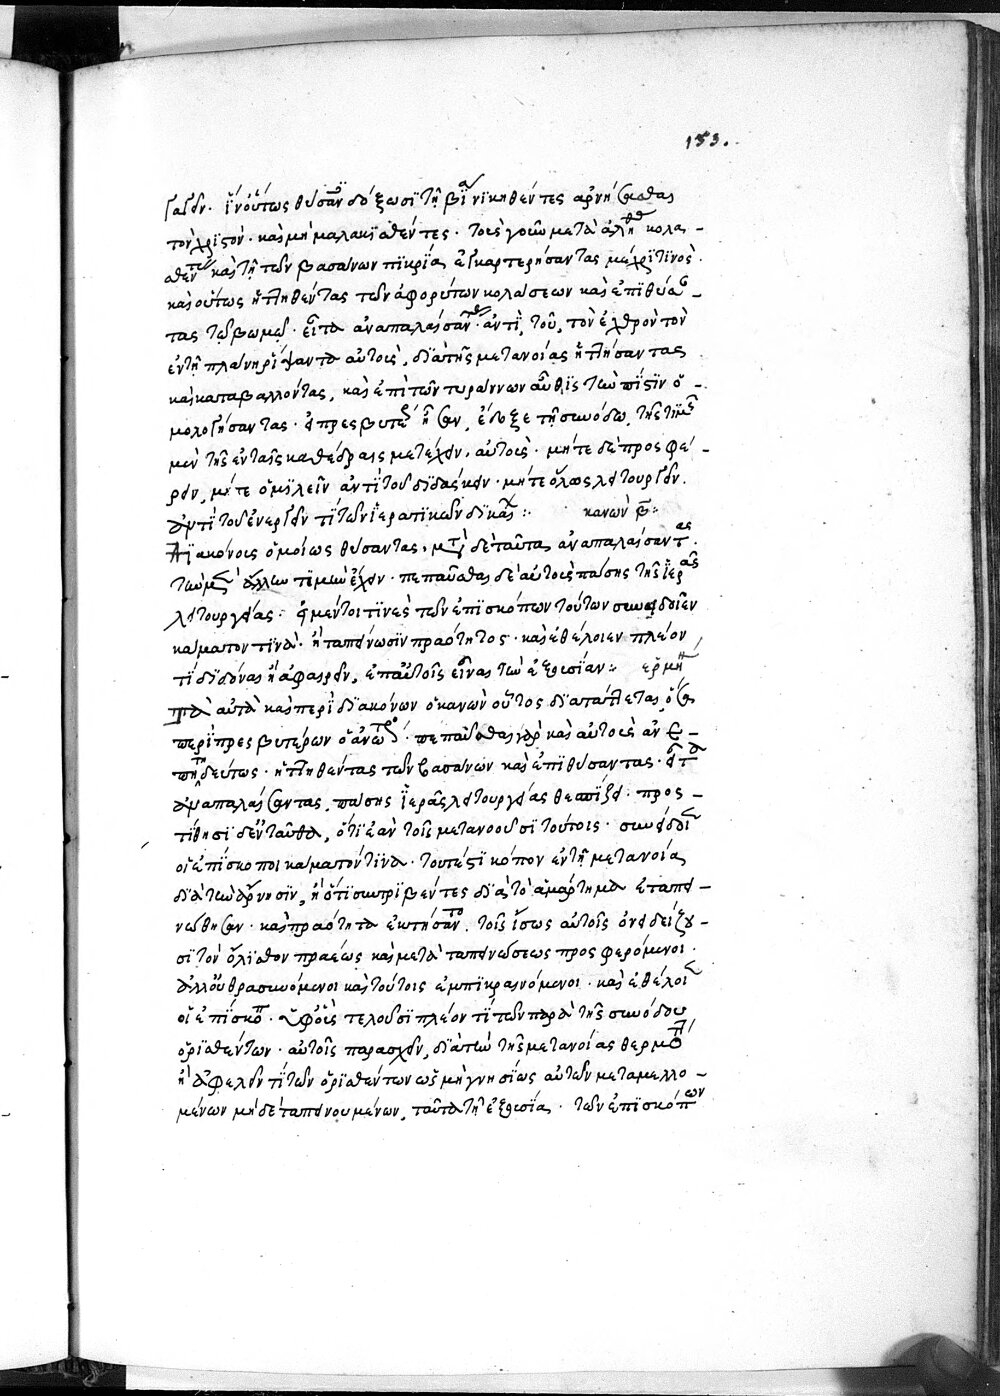 153.
γαγεῖν· ἵν' οὕτως θύσαντες δόξωσι τῇ βίᾳ νικηθέντες ἀρνήσασθαι
τὸν χριστόν· καὶ μὴ μαλακισθέντες· τοὺς γοῦν μετὰ ἀληθ κολα-
σθέντας καὶ τῇ τῶν βασάνων πικρίᾳ ἐγκαρτερήσαντας μέχρι τινὸς·
καὶ οὕτως ἡττηθέντας τῶν ἀφορήτων κολάσεων καὶ ἐπιθύσαν-
τας τῷ βωμῷ· εἶτα ἀναπαλαίσαντας ἀντὶ τοῦ, τὸν ἐχθρὸν τὸν
ἐν τῇ πλάνῃ ῥίψαντα αὐτοὺς, διὰ τῆς μετανοίας ἡττήσαντας
καὶ καταβαλλόντας, καὶ ἐπὶ τῶν τυράννων αὖθις τὴν πίστιν ὁ-
μολογήσαντας· εἰ πρεσβύτεροι ἦσαν, ἔδοξε τῇ συνόδῳ, τῆς τιμῆς
μὲν τῆς ἐν ταῖς καθέδραις μετέχειν αὐτοὺς· μήτε δὲ προσφέ-
ρειν, μήτε ὁμιλεῖν ἀντὶ τοῦ διδάσκειν· μήτε ὅλως λειτουργεῖν·
ἀντὶ τοῦ ἐνεργεῖν τι τῶν ἱερατικῶν δικαί: κανὼν β:
Διακόνους ὁμοίως θύσαντας, μετὰ δὲ ταῦτα ἀναπαλαίσαντας·
τὴν μὲν ἄλλην τιμὴν ἔχειν· πεπαῦσθαι δὲ αὐτοὺς πάσης τῆς ἱερᾶς
λειτουργίας: εἰ μέντοι τινὲς τῶν ἐπισκόπων τούτων συνειδεῖεν
κάματόν τινα· ἢ ταπείνωσιν πραότητος· καὶ ἐθέλοιεν πλεῖον
τι διδόναι ἢ ἀφαιρεῖν, ἐπ' αὐτοῖς εἶναι τὴν ἐξουσίαν: ἑρμη
τὰ αὐτὰ καὶ περὶ διακόνων ὁ κανὼν οὗτος διατάττεται, ὅσα
περὶ πρεσβυτέρων ὁ ἀνωτέρω· πεπαῦσθαι γὰρ καὶ αὐτοὺς ἀνε-
πιτηδεύτως· ἡττηθέντας τῶν βασάνων καὶ ἐπιθύσαντας· εἶτα
ἀναπαλαίσαντας, πάσης ἱερᾶς λειτουργίας θεσπίζει· προσ-
τίθησι δ' ἐνταῦθα, ὅτι ἐὰν τοῖς μετανοοῦσι τούτοις· συνειδεῖεν
οἱ ἐπίσκοποι κάματόν τινα· τουτέστι κόπον ἐν τῇ μετανοίᾳ
διὰ τὴν ἄρνησιν, ἢ ὅτι συντριβέντες διὰ τὸ ἁμάρτημα ἐταπει-
νώθησαν· καὶ πραότητα ἐκτήσαντο· τοῖς ἴσως αὐτοῖς ὀνειδίζου-
σι τὸν ὄλισθον πράως καὶ μετὰ ταπεινώσεως προσφερόμενοι·
ἀλλ' οὐ θρασυνόμενοι καὶ τούτοις ἐμπικραινόμενοι· καὶ ἐθέλοιεν
οἱ ἐπίσκοποι· ἐφ' οἷς τελοῦσι πλεῖον τι τῶν παρὰ τῆς συνόδου
ὁρισθέντων· αὐτοῖς παρασχεῖν, διὰ τὴν τῆς μετανοίας θερμότητα
ἢ ἀφελεῖν τι τῶν ὁρισθέντων ὡς μὴ γνησίως αὐτῶν μεταμελλο-
μένων μηδὲ ταπεινουμένων, ταῦτα τῇ ἐξουσίᾳ· τῶν ἐπισκόπων